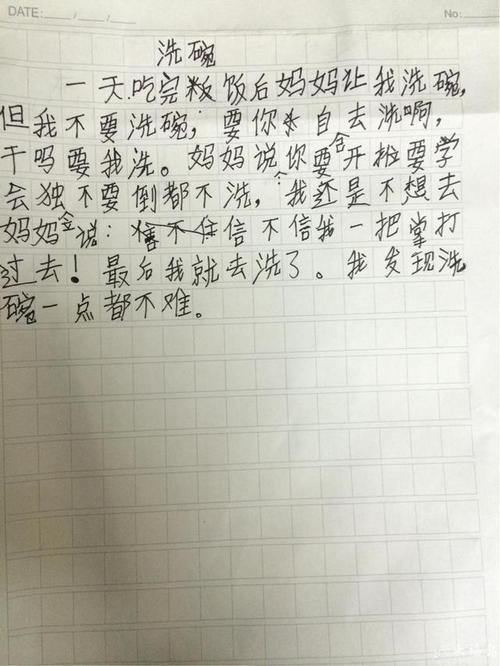 DATE: / /
No:
洗碗
一天吃完饭后妈妈让我洗碗,
但我不要洗碗,要你自去洗啊,
干吗要我洗。妈妈说你要开推要学
会独不要倒都不洗,我还是不想去
妈妈说:信不信我一把掌打
过去!最后我就去洗了。我发现洗
碗一点都不难。